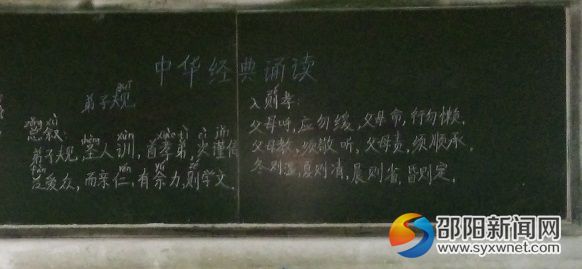 中华经典诵读
弟子规
总叙:
弟子规,圣人训,首孝弟,次谨信
泛爱众,而亲仁,有余力,则学文。
入则孝:
父母呼,应勿缓,父母命,行勿懒,
父母教,须敬听,父母责,须顺承,
冬则温,夏则凊,晨则省,昏则定。
邵阳新闻网
www.syxwnet.com